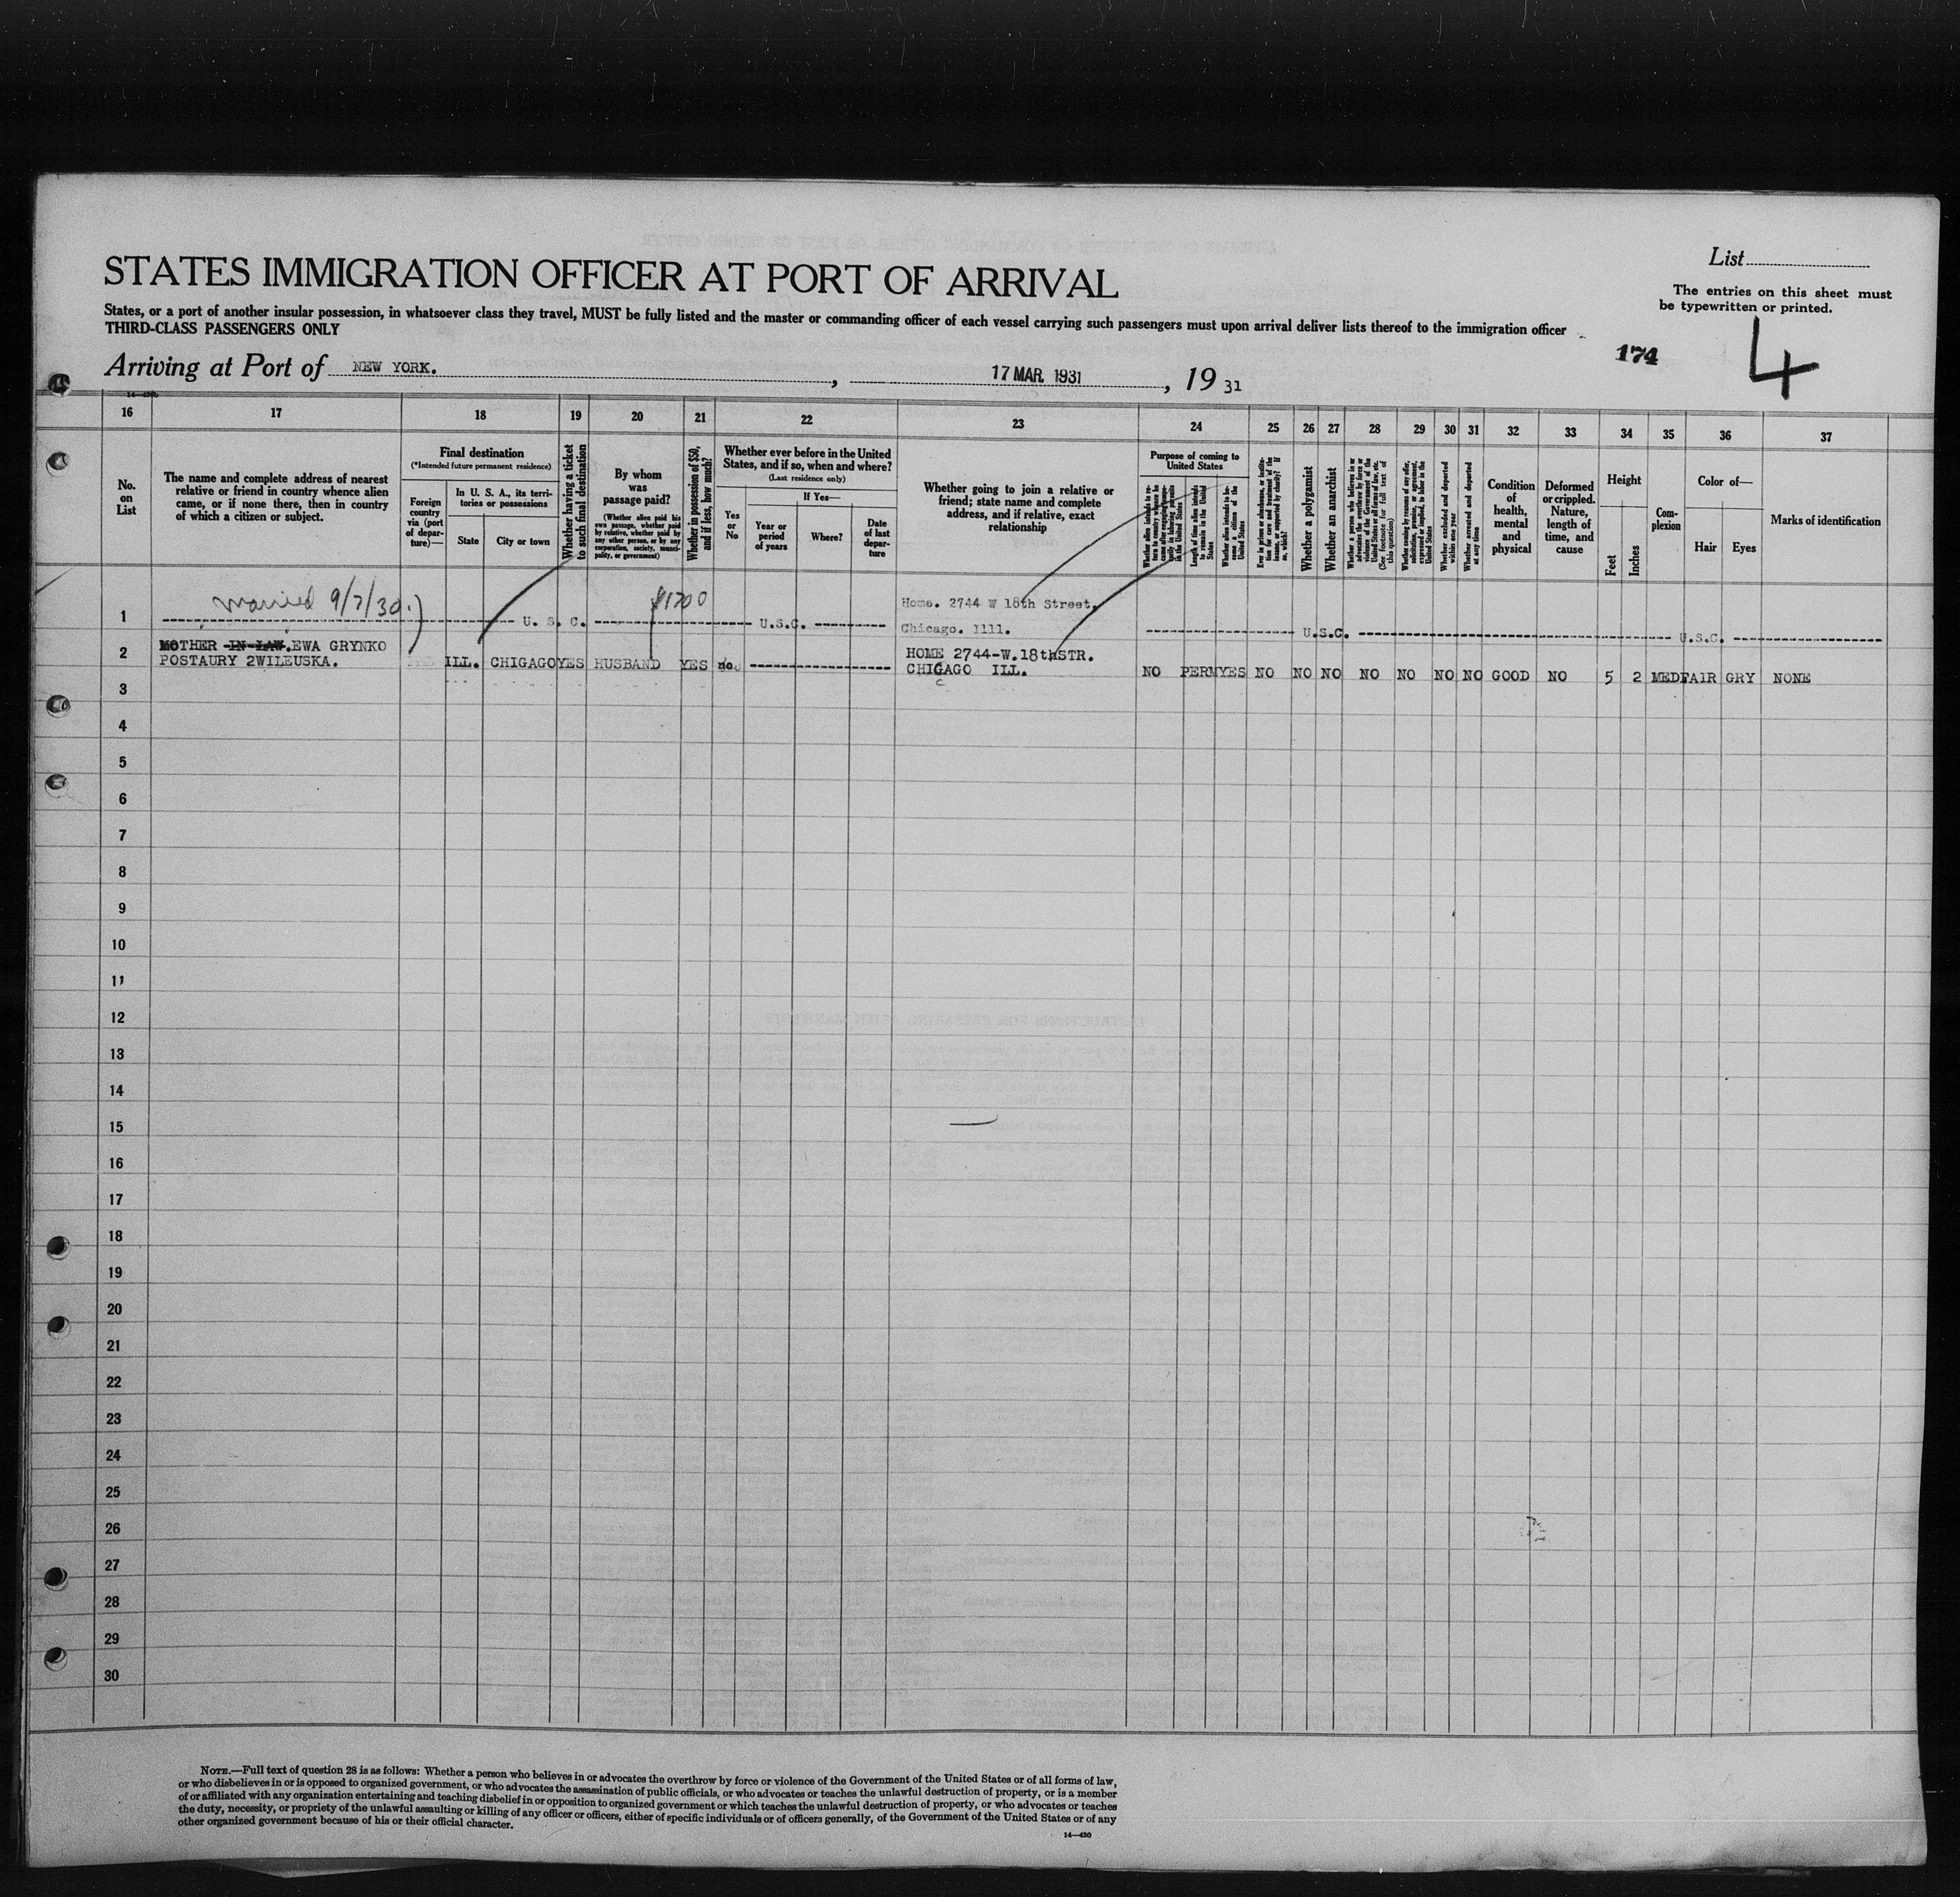 List
STATES IMMIGRATION OFFICER AT PORT OF ARRIVAL
The entries on this sheet must
be typewritten or printed.
States, or a port of another insular possession, in whatsoever class they travel, MUST be fully listed and the master or commanding officer of each vessel carrying such passengers must upon arrival deliver lists thereof to the immigration officer
THIRD-CLASS PASSENGERS ONLY
174
4
Arriving at Port of NEW YORK. , 17 MAR. 1931 , 19 31
16 17 18 19 20 21 22 23 24 25 26 27 28 29 30 31 32 33 34 35 36 37
No.
on
List
The name and complete address of nearest
relative or friend in country whence alien
came, or if none there, then in country
of which a citizen or subject.
Final destination
(*Intended future permanent residence)
Foreign
country
via (port
of depar-
ture)—
In U. S. A., its terri-
tories or possessions
State
City or town
Whether having a ticket
to such final destination
By whom
was
passage paid?
(Whether alien paid his
own passage, whether paid
by relative, whether paid by
any other person, or by any
corporation, society, munici-
pality, or government)
Whether in possession of $50,
and if less, how much?
Whether ever before in the United
States, and if so, when and where?
(Last residence only)
Yes
or
No
If Yes—
Year or
period
of years
Where?
Date
of last
depar-
ture
Whether going to join a relative or
friend; state name and complete
address, and if relative, exact
relationship
Purpose of coming to
United States
Length of time alien intends
to remain in the United
States
Whether alien intends to be-
come a citizen of the
United States
Whether a polygamist
Whether an anarchist
Whether excluded and deported
within one year
Whether arrested and deported
at any time
Condition
of
health,
mental
and
physical
Deformed
or crippled.
Nature,
length of
time, and
cause
Height
Feet
Inches
Com-
plexion
Color of—
Hair
Eyes
Marks of identification
married 9/7/30.)
$1700
1 U. S. C. U.S.C. Home. 2744 W 18th Street,
Chicago. Illl. U.S.C. U.S.C.
2 MOTHER IN-LAW.EWA GRYNKO
POSTAURY 2WILEUSKA. ILL. CHIGAGO YES HUSBAND YES no. HOME 2744-W.18thSTR.
CHICAGO ILL. NO PERM YES NO NO NO NO NO NO NO GOOD NO 5 2 MED FAIR GRY NONE
c
3
4
5
6
7
8
9
10
11
12
13
14
15
16
17
18
19
20
21
22
23
24
25
26
27
28
29
30
NOTE.—Full text of question 28 is as follows: Whether a person who believes in or advocates the overthrow by force or violence of the Government of the United States or of all forms of law,
or who disbelieves in or is opposed to organized government, or who advocates the assassination of public officials, or who advocates or teaches the unlawful destruction of property, or is a member
of or affiliated with any organization entertaining and teaching disbelief in or opposition to organized government or which teaches the unlawful destruction of property, or who advocates or teaches
the duty, necessity, or propriety of the unlawful assaulting or killing of any officer or officers, either of specific individuals or of officers generally, of the Government of the United States or of any
other organized government because of his or their official character.
14—430